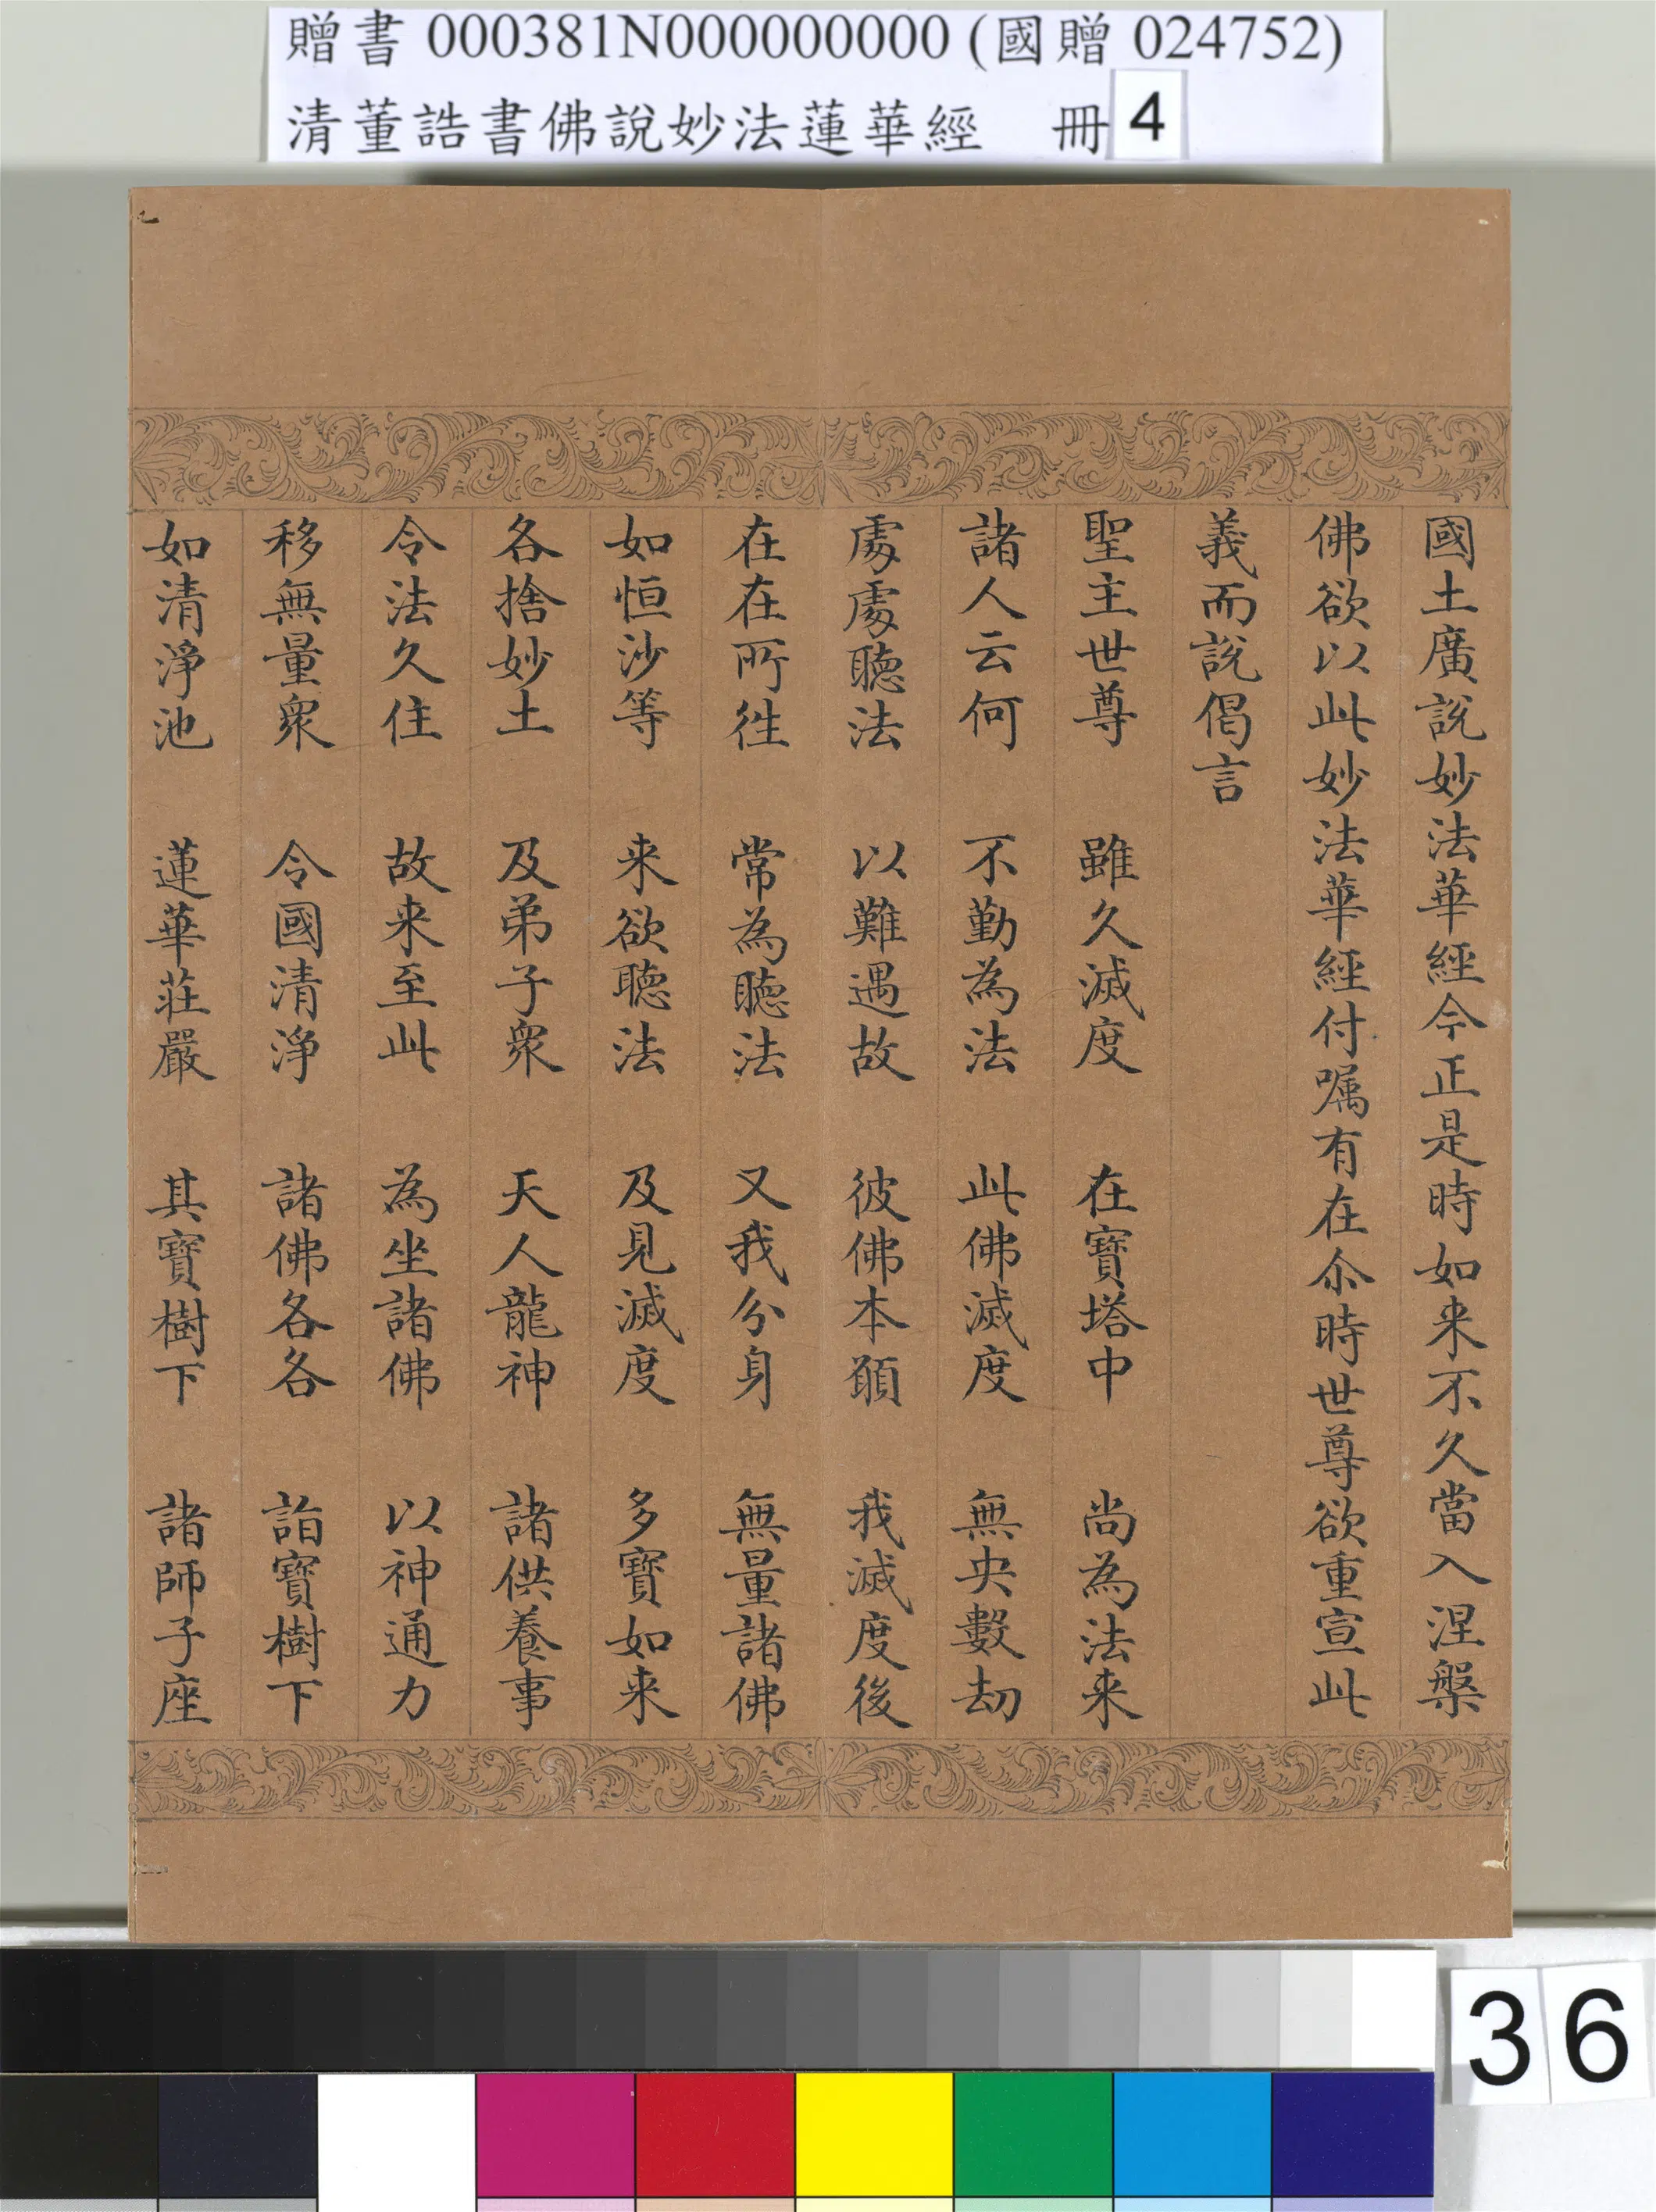 贈書 000381N000000000 (國贈 024752)
清董誥書佛說妙法蓮華經 冊4
國土廣說妙法華經今正是時如来不久當入涅槃
佛欲以此妙法華經付嘱有在尒時世尊欲重宣此
義而說偈言
聖主世尊 雖久滅度 在寶塔中 尚為法来
諸人云何 不勤為法 此佛滅度 無央數劫
處處聽法 以難遇故 彼佛本願 我滅度後
在在所徃 常為聽法 又我分身 無量諸佛
如恒沙等 来欲聽法 及見滅度 多寶如来
各捨妙土 及弟子衆 天人龍神 諸供養事
令法久住 故来至此 為坐諸佛 以神通力
移無量衆 令國清淨 諸佛各各 詣寶樹下
如清淨池 蓮華莊嚴 其寶樹下 諸師子座
36